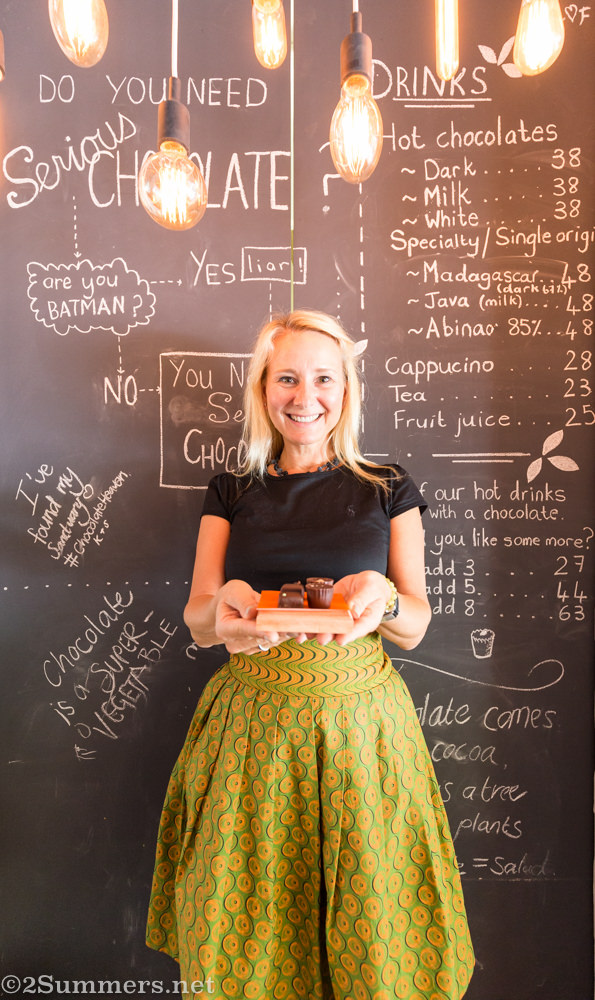 DO YOU NEED
Serious
CHOCOLATE ?
are you
BATMAN?
YES
liar!
NO
You N
Se
CHOC
I've
found my
Sanctuary
#ChocolateHeaven
Chocolate
is a SUPER-
VEGETABLE
DRINKS
Hot chocolates
~ Dark...... 38
~ Milk...... 38
~ White..... 38
Specialty/Single origi
~ Madagascar 48
(dark 67%)
~ Java (milk).... 48
~ Abinao 85%.. 48
Cappucino .... 28
Tea ........ 23
Fruit juice.... 25
f our hot drinks
with a chocolate.
you like some more?
add 3 ..... 27
add 5 ..... 44
add 8 ..... 63
olate comes
cocoa,
s a tree
plants
= Salad
©2Summers.net